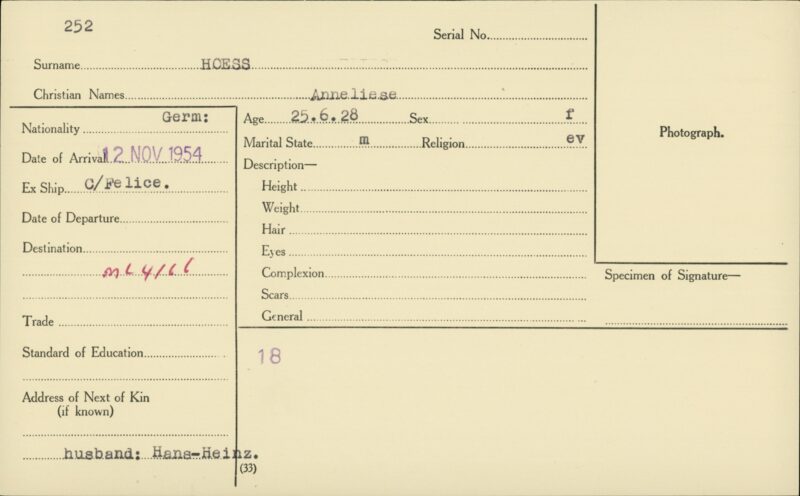 252
Serial No.
Surname HOESS
Christian Names Anneliese
Nationality Germ:
Date of Arrival 12 NOV 1954
Ex Ship C/Felice.
Date of Departure
Destination
ML 4/66
Trade
Standard of Education
Address of Next of Kin
(if known)
husband: Hans-Heinz.
Age 25.6.28 Sex f
Marital State m Religion ev
Description—
Height
Weight
Hair
Eyes
Complexion
Scars
General
18
(33)
Photograph.
Specimen of Signature—